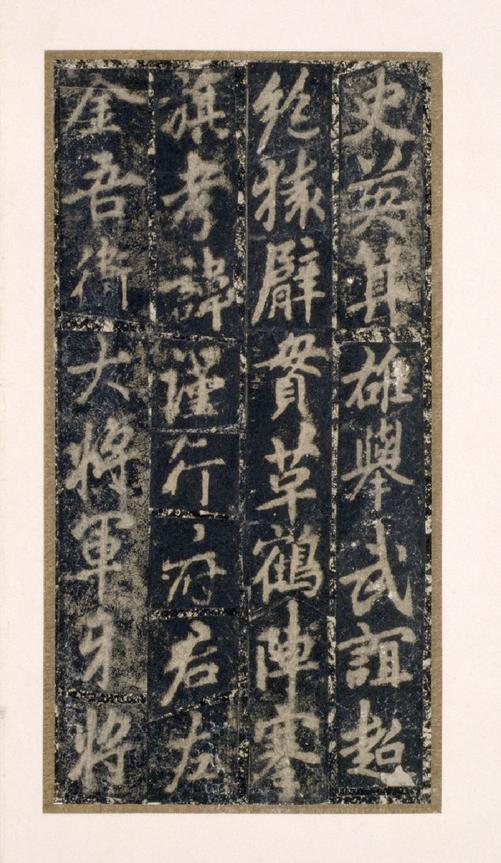 史英其雄舉武誼超
絶猿臂貫革鶴陣搴
旗考諱謹行府君左
金吾衛大將軍牙將